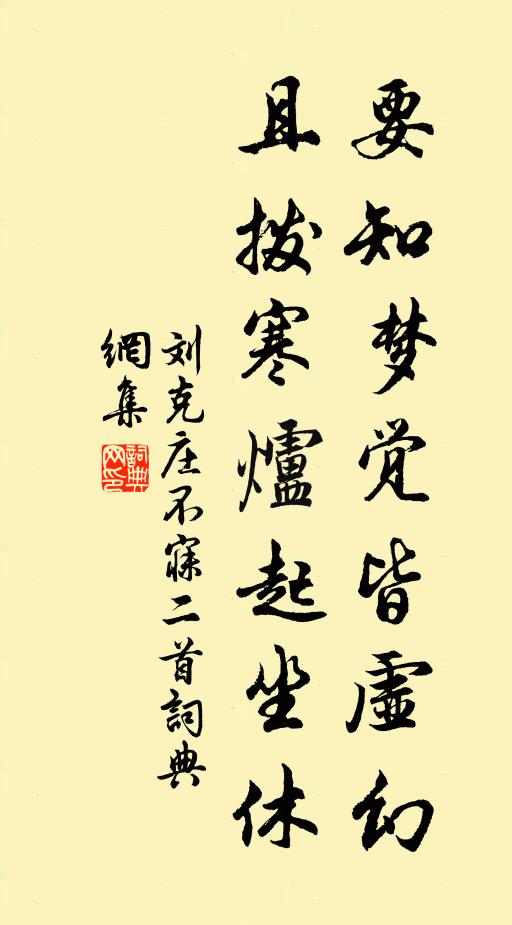 要知梦觉皆虚幻
且拨寒爐起坐休
刘克庄不寐二首詞典
網集
詞典网印